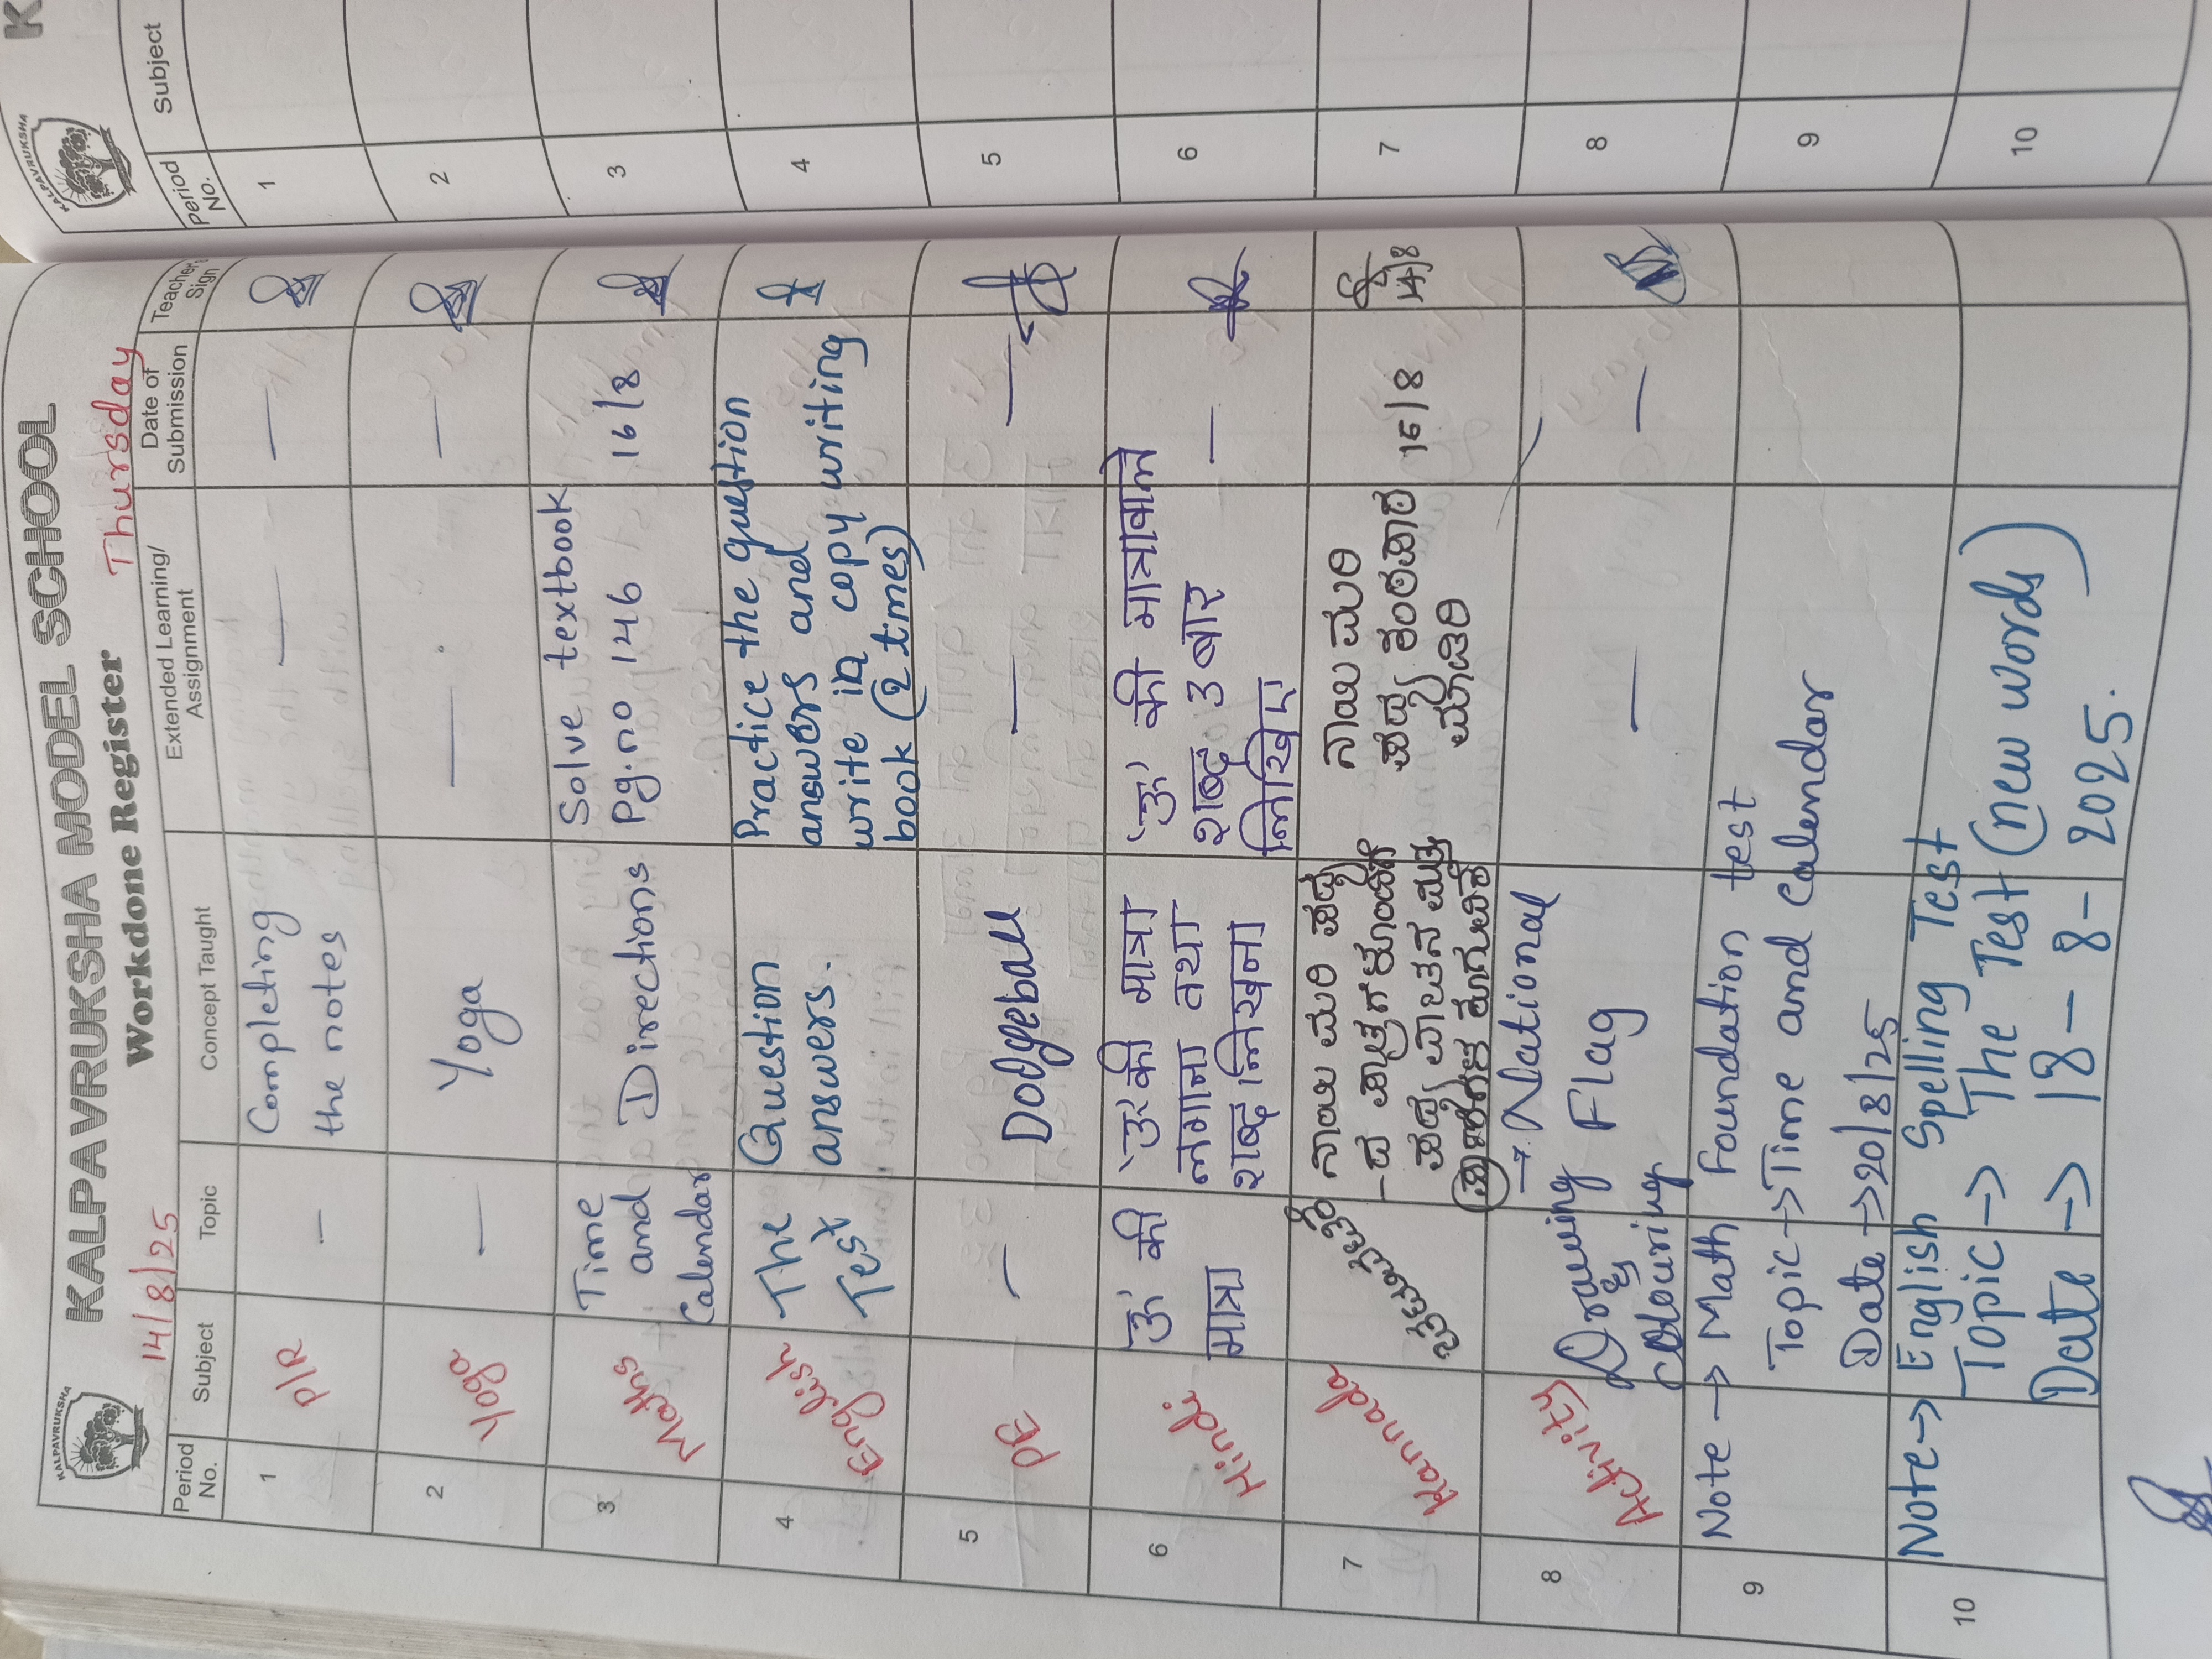 KALPAVRUKSHA
KALPAVRUKSHA MODEL SCHOOL
14/8/25 Workdone Register Thursday
Period No. Subject Topic Concept Taught Extended Learning/ Assignment Date of Submission Teacher Sign
1 P/R — Completing
the notes — —
2 Yoga — Yoga — —
3 Maths Time
and
Calendar Directions Solve textbook
Pg.no 146 16/8
4 English The
Test Question
answers. Practice the question
answers and
write in copy writing
book (2 times)
5 PE — Dodgeball — —
6 Hindi 'उ' की
मात्रा 'उ' की मात्रा
लगाना तथा
शब्द लिखना 'उ' की मात्रावाले
शब्द 3 बार
लिखिए —
7 Kannada ನಾಯಿ ಮರಿ ಪದ್ಯ
ಪದ್ಯ ವಾಚನ ಮತ್ತು
ನಾಯಿ ಮರಿ
ಪದ್ಯ ಕಂಠಪಾಠ
ಮಾಡಿರಿ 16/8
14/8
8 Activity Drawing
&
colouring → National
Flag — —
9 Note → Math Foundation test
Topic → Time and Calendar
Date → 20/8/25
10 Note → English Spelling Test
Topic → The Test (new words)
Date → 18-8-2025.
KALPAVRUKSHA
K
Period No. Subject
1
2
3
4
5
6
7
8
9
10